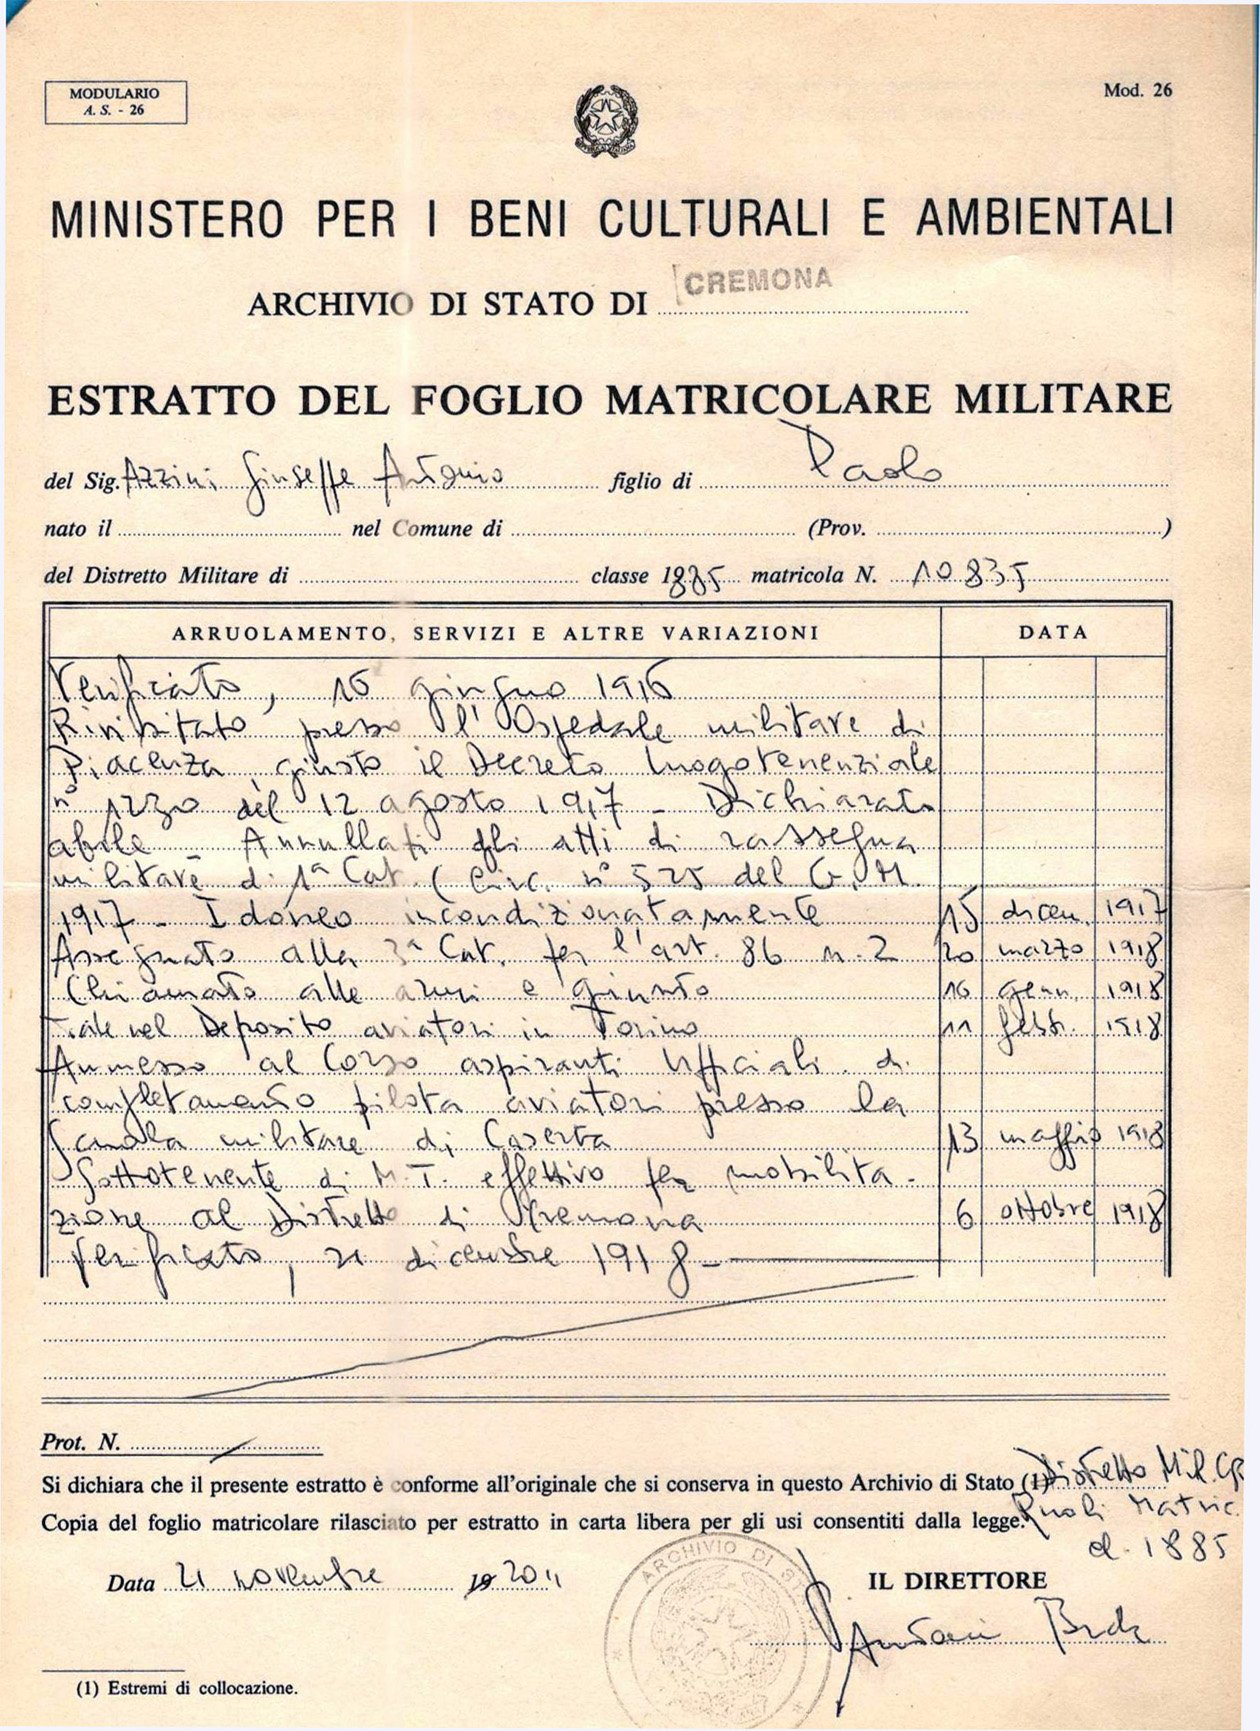 MODULARIO
A. S. - 26
Mod. 26
MINISTERO PER I BENI CULTURALI E AMBIENTALI
ARCHIVIO DI STATO DI CREMONA
ESTRATTO DEL FOGLIO MATRICOLARE MILITARE
del Sig. Azzini Giuseppe Antonio figlio di Paolo
nato il nel Comune di (Prov. )
del Distretto Militare di classe 1885 matricola N. 10835
ARRUOLAMENTO, SERVIZI E ALTRE VARIAZIONI DATA
Verificato, 16 giugno 1916
Rivisitato presso l'Ospedale militare di
Piacenza, giusto il Decreto luogotenenziale
n° 1230 del 12 agosto 1917 - Dichiarato
abile - Annullati gli atti di rassegna
militare di 1ª Cat. (Circ. n° 525 del G.M.
1917 - Idoneo incondizionatamente 15 dicem. 1917
Assegnato alla 3ª Cat. per l'art. 86 n. 2 20 marzo 1918
Chiamato alle armi e giunto 16 genn. 1918
Tale nel Deposito aviatori in Torino 11 febb. 1918
Ammesso al Corso aspiranti Ufficiali di
completamento pilota aviatori presso la
Scuola militare di Caserta 13 maggio 1918
Sottotenente di M.T. effettivo per mobilita-
zione al Distretto di Cremona 6 ottobre 1918
Verificato, 21 dicembre 1918 -
Prot. N.
Si dichiara che il presente estratto è conforme all'originale che si conserva in questo Archivio di Stato (1) Distretto Mil. Cr
Copia del foglio matricolare rilasciato per estratto in carta libera per gli usi consentiti dalla legge. Ruoli Matric.
cl. 1885
Data 21 novembre 19 2011
ARCHIVIO DI ST
IL DIRETTORE
(1) Estremi di collocazione.